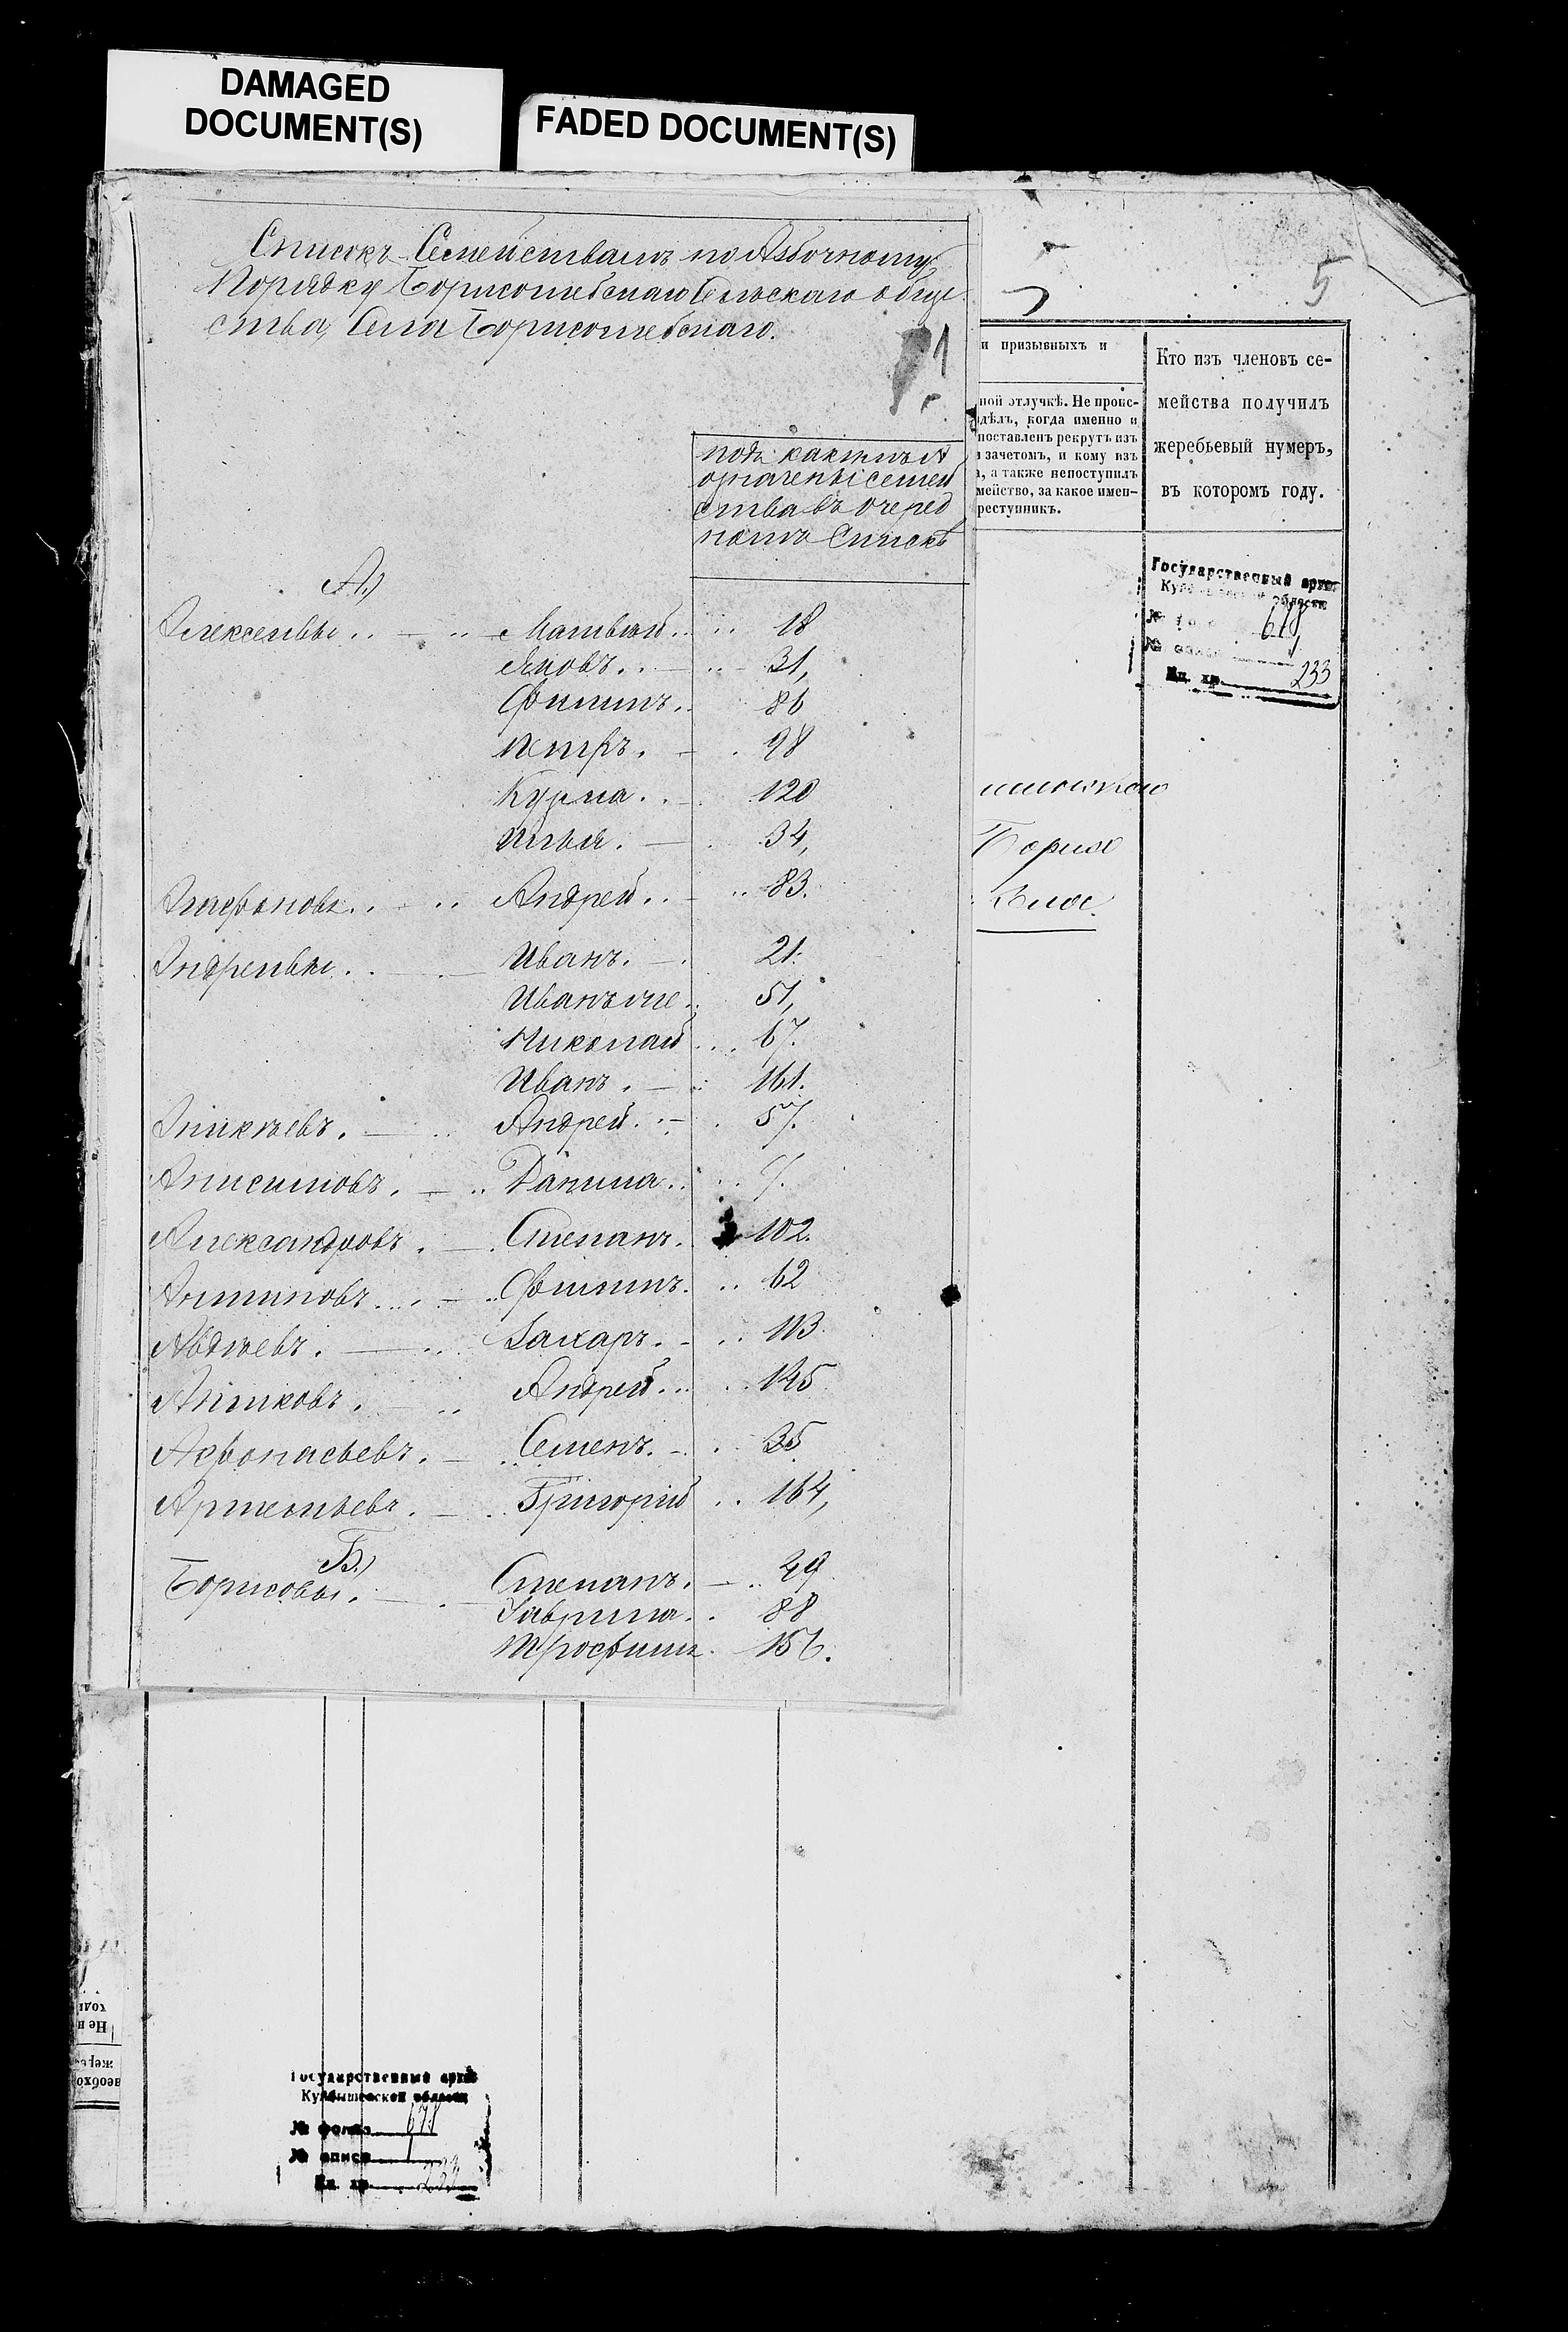 DAMAGED
DOCUMENT(S)
FADED DOCUMENT(S)
5
Списокъ Семействамъ по Азбочному
Порядку Борисоглебскаго Сельскаго обще
ства, Села Борисоглебскаго.
1
подъ какимъ №
означены семей
ства въ очеред
номъ Списке
А)
Алексеевы Матвей 18
Яковъ 31,
Филипъ 86
Петръ 98
Кузма 120
Илья 34,
Агафоновъ Андрей 83.
Андреевы Иванъ 21.
Иванъ оне 51,
Николай 67.
Иванъ 161.
Аникѣевъ Андрей 57.
Анисимовъ Данила
Александровъ Степанъ 102.
Антиповъ Филипъ 62
Авдѣевъ Захаръ 113
Андрей 145
Афонасьевъ Семенъ 35
Артемьевъ Григорій 164,
Б)
Борисовы Степанъ 29
Гаврила 88
Трофимъ 156.
и призывныхъ и
ной отлучкѣ. Не проис-
дѣлъ, когда именно и
поставленъ рекрутъ изъ
зачетомъ, и кому изъ
а, а также непоступилъ
мейство, за какое имен-
реступникъ.
Кто изъ членовъ се-
мейства получилъ
жеребьевый нумеръ,
въ которомъ году.
Государственный архив
Куйбышевской области
№ фонда 678
№ описи
Ед. хр. 233
Борисо
Влос.
Не н
жере
необхо
Государственный архив
Куйбышевской области
№ фонда 678
№ описи 1
Ед. хр. 233